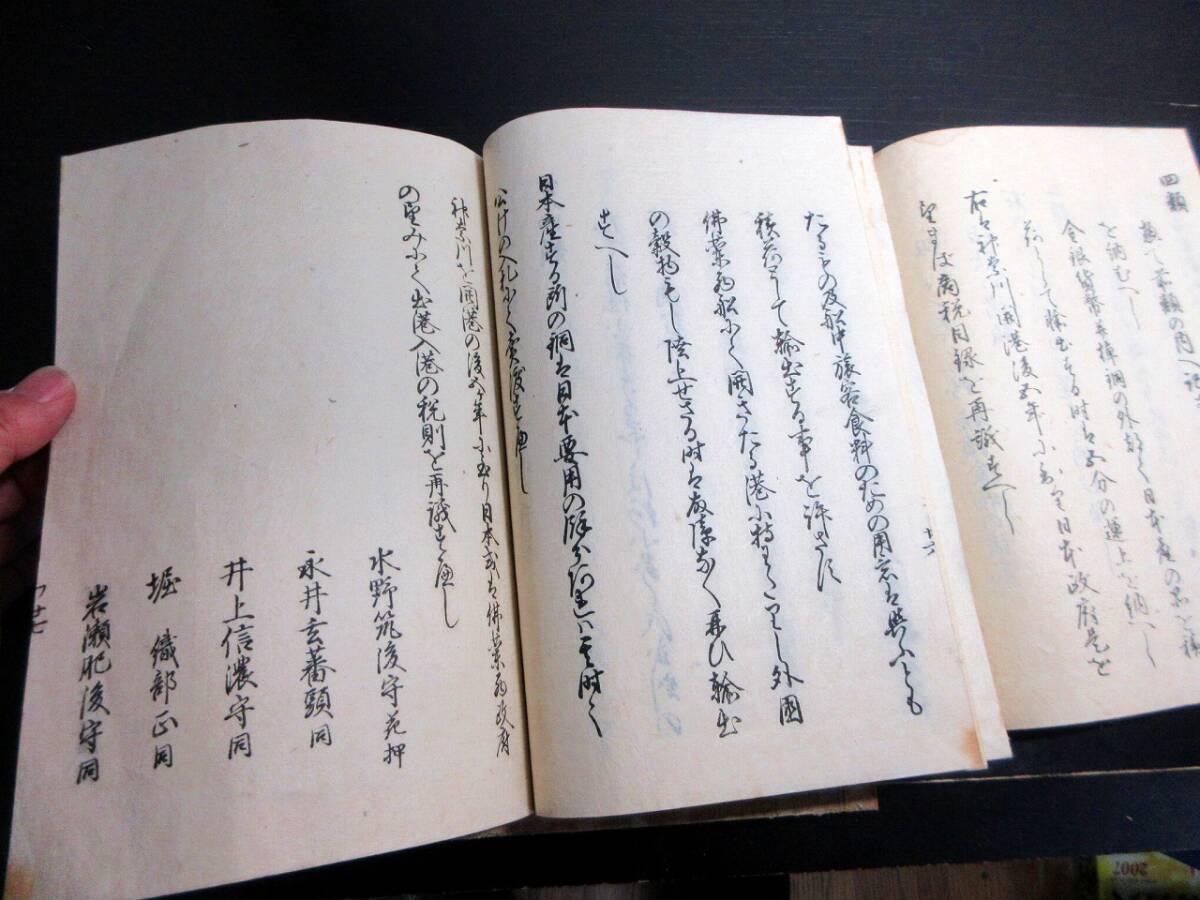 四類
を納むへし
金銀貨幣并棹銅の外都て日本産の品を積
荷として輸出する時は五分の運上を納へし
右は神奈川開港後五年に至り日本政府是を
望まは商税目録を再議すへし
十六
たるもの及船中旅客食料のための用意は與ふとも
積荷として輸出する事を許さす
佛蘭西船にて開きたる港に持わたりし外國
の穀物もし陸上せさる時は故障なく再ひ輸出
すへし
日本産する所の銅は日本要用の餘分あれは其時々
公けの入札にて賣渡すへし
神奈川を開港の後五年に至り日本或は佛蘭西政府
の望みにて出港入港の税則を再議すへし
水野筑後守花押
永井玄蕃頭同
井上信濃守同
堀 織部正同
岩瀬肥後守同
2007